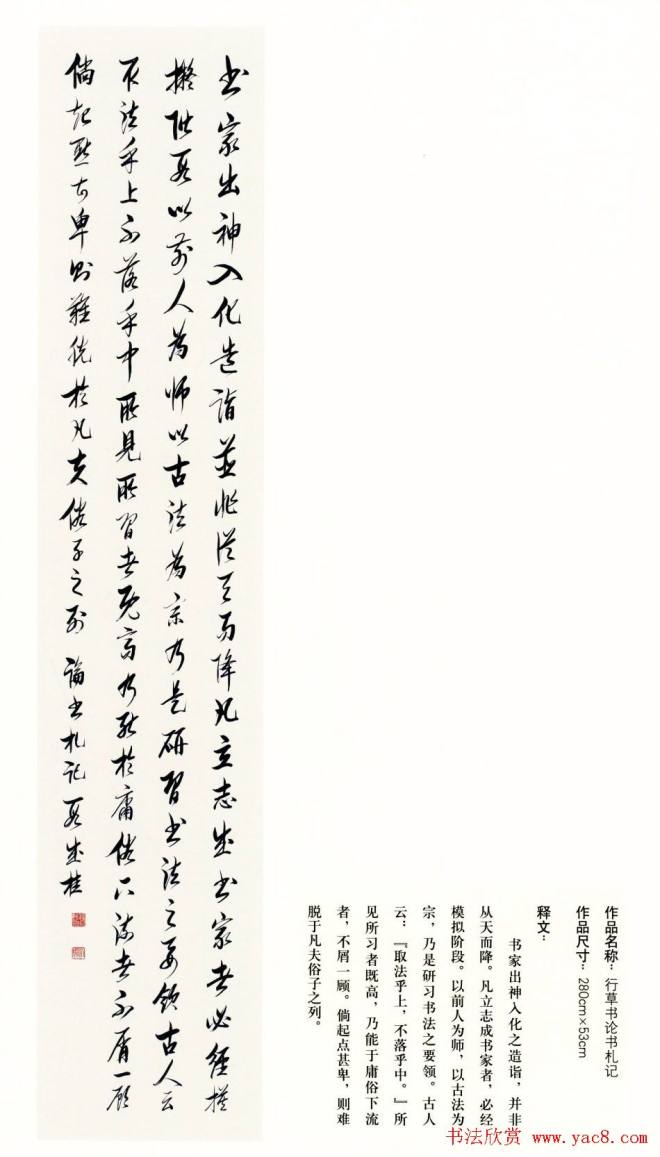 书家出神入化造诣並非从天而降凡立志成书家者必经模
拟阶段以前人为师以古法为宗乃是研习书法之要领古人云
取法乎上不落乎中所见所习者既高乃能於庸俗下流者不屑一顾
倘起点甚卑则难脱於凡夫俗子之列 论书札记 段成桂
作品名称：行草书论书札记
作品尺寸：280cm×53cm
释文：
书家出神入化之造诣，并非
从天而降。凡立志成书家者，必经
模拟阶段。以前人为师，以古法为
宗，乃是研习书法之要领。古人
云：『取法乎上，不落乎中。』所
见所习者既高，乃能于庸俗下流
者，不屑一顾。倘起点甚卑，则难
脱于凡夫俗子之列。
书法欣赏 www.yac8.com